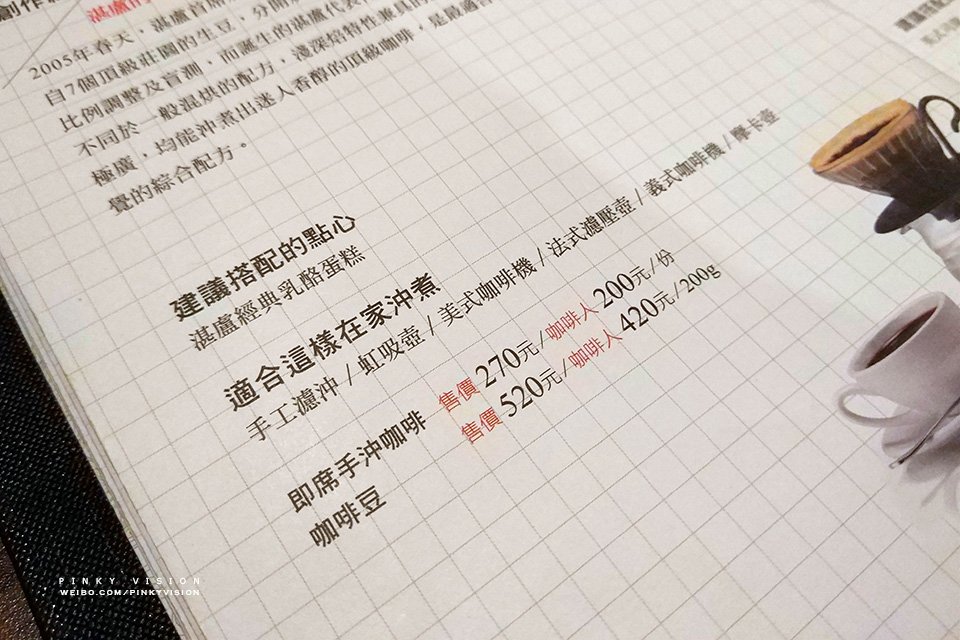 2005年春天，湛盧首席
自7個頂級莊園的生豆，分開
比例調整及盲測，而誕生的湛盧代表
不同於一般混烘的配方，淺深焙特性兼具的
極廣，均能沖煮出迷人香醇的頂級咖啡，是最適合
覺的綜合配方。
建議搭配的點心
湛盧經典乳酪蛋糕
適合這樣在家沖煮
手工濾沖 / 虹吸壺 / 美式咖啡機 / 法式濾壓壺 / 義式咖啡機 / 摩卡壺
即席手沖咖啡 售價 270元 / 咖啡人 200元 / 份
咖啡豆 售價 520元 / 咖啡人 420元 / 200g
PINKY VISION
WEIBO.COM/PINKYVISION